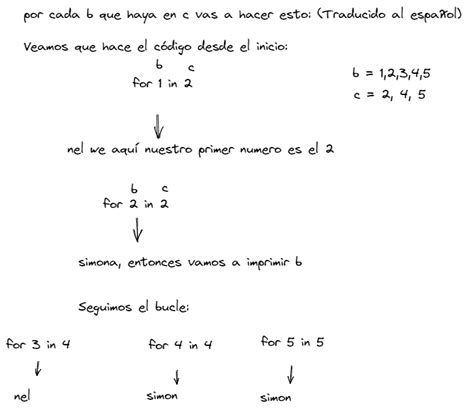 por cada b que haya en c vas a hacer esto: (Traducido al español)
Veamos que hace el código desde el inicio:
b c
for 1 in 2
b = 1,2,3,4,5
c = 2, 4, 5
nel we aquí nuestro primer numero es el 2
b c
for 2 in 2
simona, entonces vamos a imprimir b
Seguimos el bucle:
for 3 in 4 for 4 in 4 for 5 in 5
nel simon simon